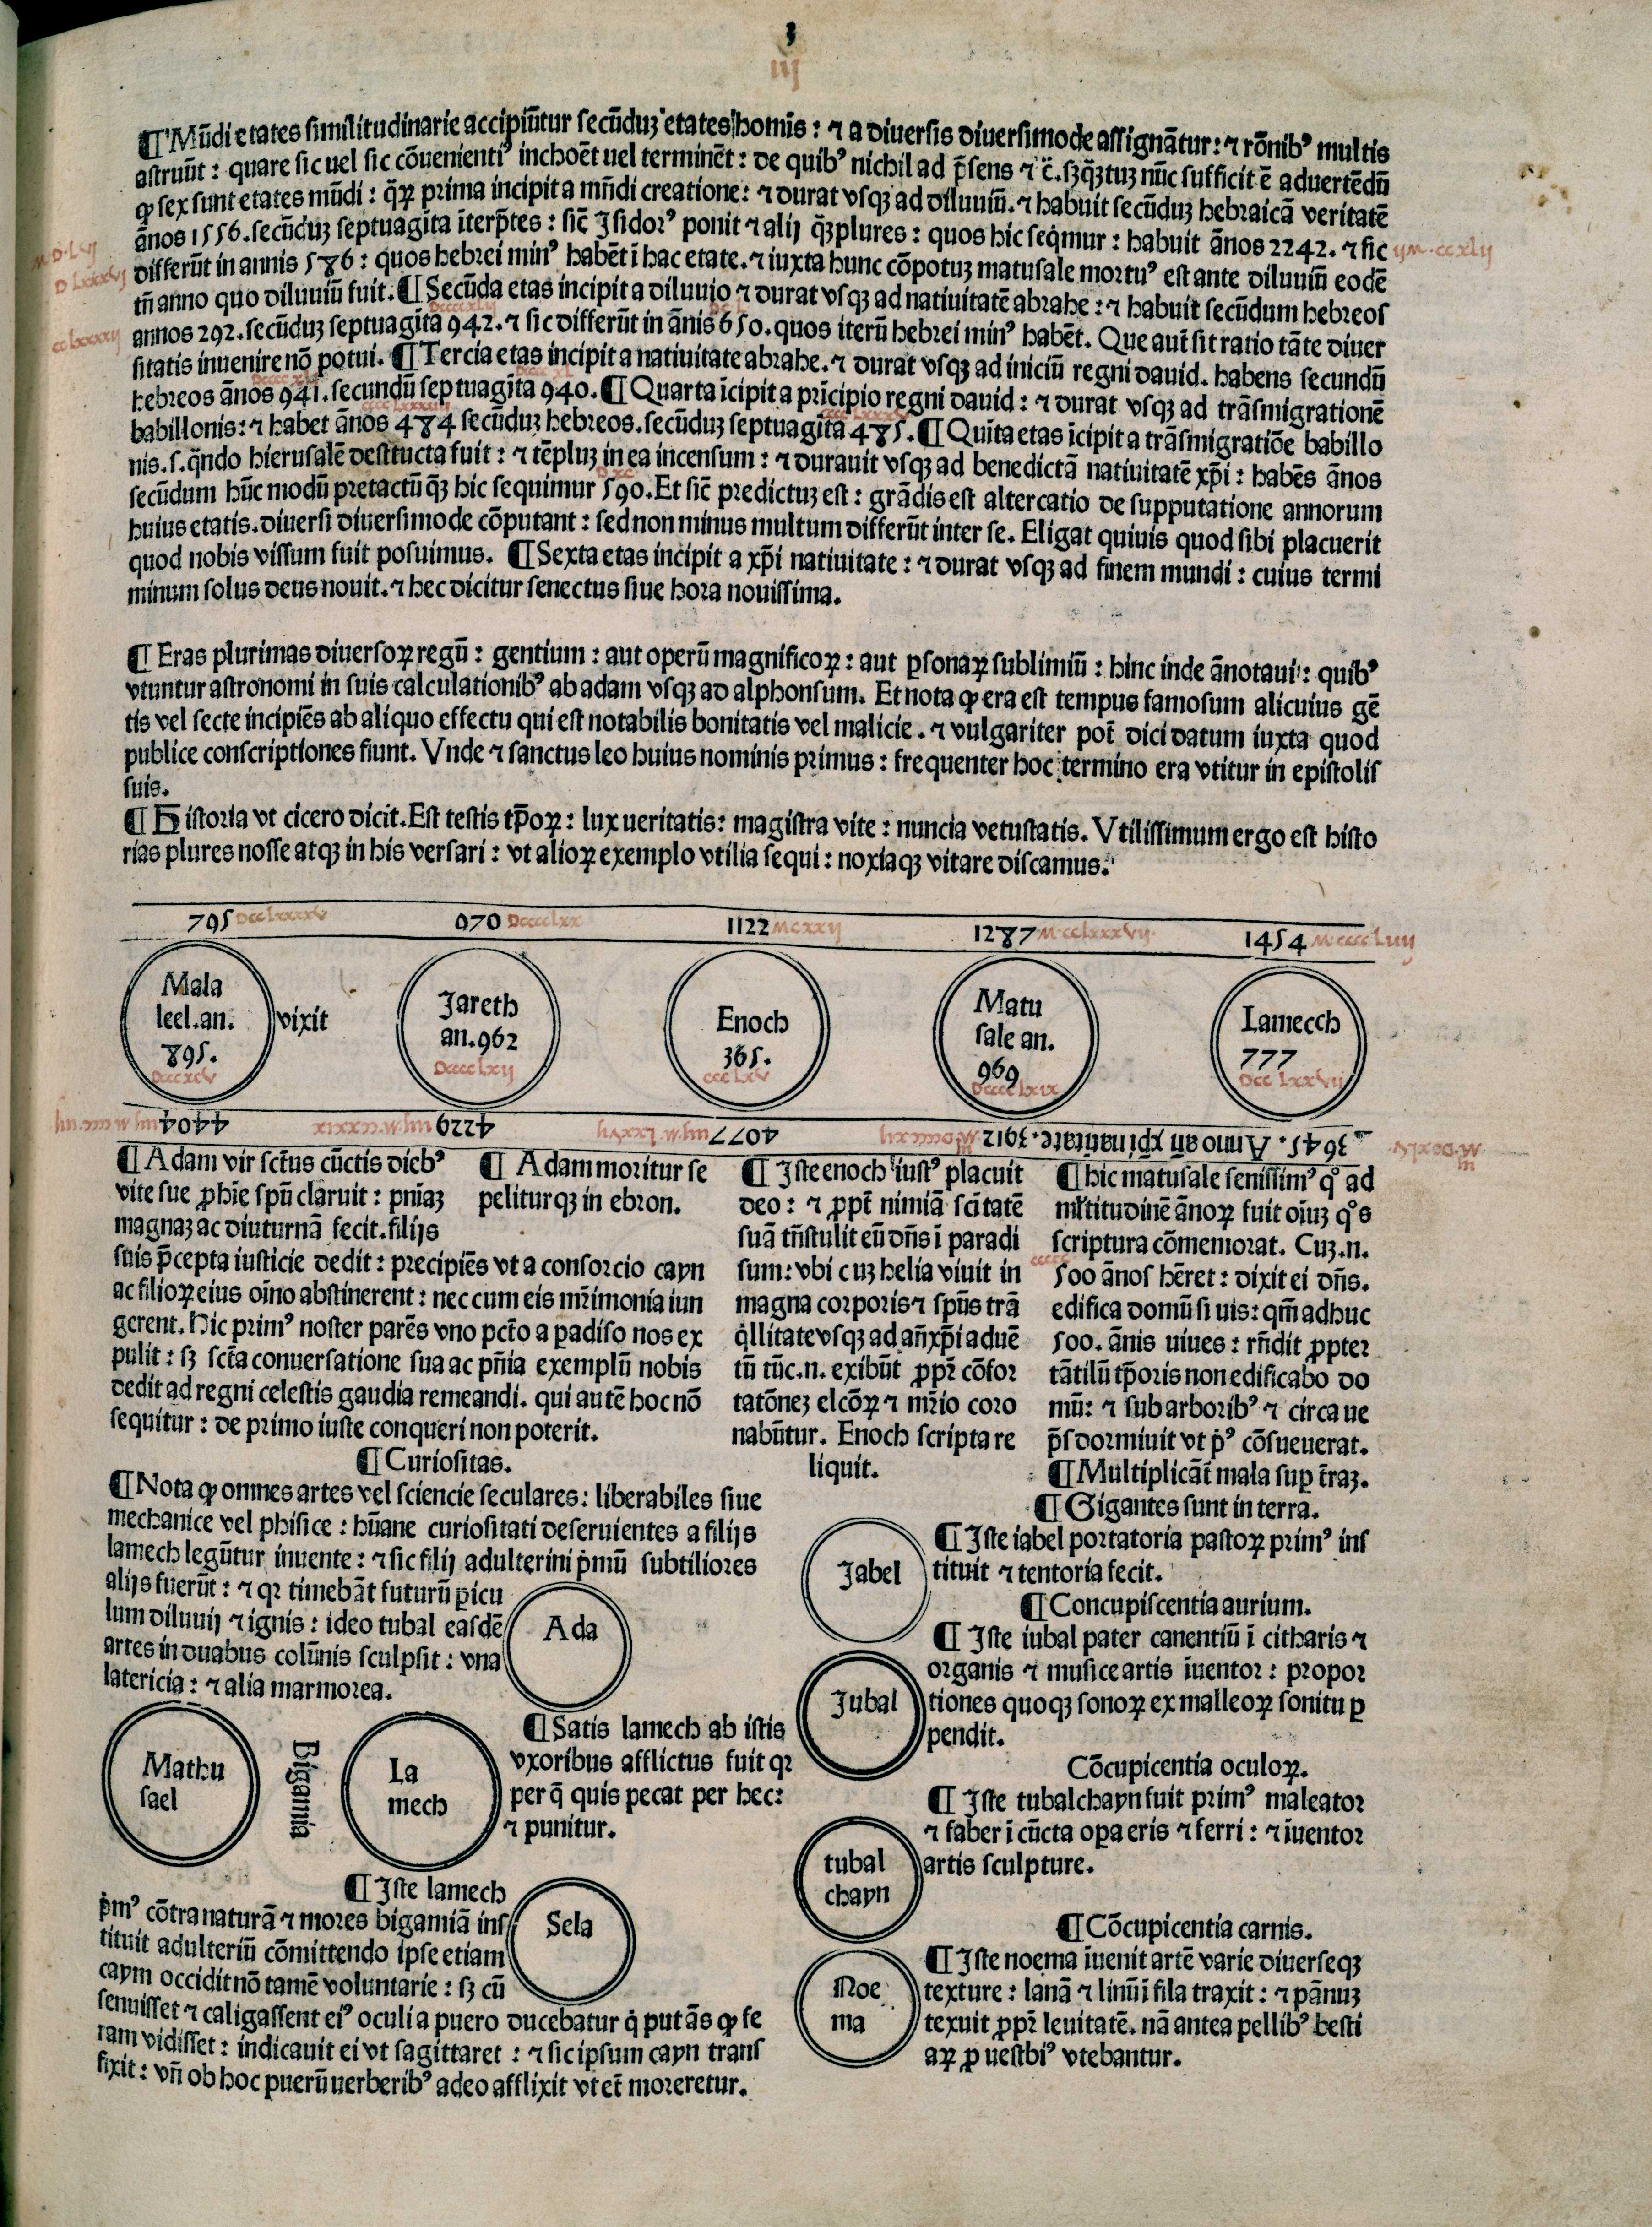 3
iij
¶ Mūdi etates similitudinarie accipiūtur secūduꝫ etates homīs : ⁊ a diuersis diuersimode assignātur : ⁊ rōnibꝰ multis
astruūt : quare sic uel sic cōuenientiꝰ inchoēt uel terminēt : de quibꝰ nichil ad p̄sens ⁊ c̄. sꝫ q̄ꝫtuꝫ nūc sufficit ē aduertēdū
ꝙ sex sunt etates mūdi : q̄ꝝ prima incipit a mn̄di creatione : ⁊ durat vsqꝫ ad diluuiū. ⁊ habuit secūduꝫ hebraicā veritatē
ānos 1556. secūduꝫ septuagīta īterp̄tes : sic̄ Isidorꝰ ponit ⁊ alij q̄ꝫplures : quos hic seq̄mur : habuit ānos 2242. ⁊ sic
differūt in annis 586 : quos hebrei minꝰ habēt ī hac etate. ⁊ iuxta hunc cōpotuꝫ matusale mortuꝰ est ante diluuiū eodē
tn̄ anno quo diluuiū fuit. ¶ Secūda etas incipit a diluuio ⁊ durat vsqꝫ ad natiuitatē abrahe : ⁊ habuit secūdum hebreos
annos 292. secūduꝫ septuagīta 942. ⁊ sic differūt in ānis 650. quos iterū hebrei minꝰ habēt. Que aut̄ sit ratio tāte diuer
sitatis inuenire nō potui. ¶ Tercia etas incipit a natiuitate abrahe. ⁊ durat vsqꝫ ad iniciū regni dauid. habens secundū
hebreos ānos 941. secundū septuagīta 940. ¶ Quarta īcipit a prīcipio regni dauid : ⁊ durat vsqꝫ ad trāsmigrationē
babillonis : ⁊ habet ānos 484 secūduꝫ hebreos. secūduꝫ septuagīta 485. ¶ Quīta etas īcipit a trāsmigratiōe babillo
nis. s. q̄ndo hierusalē destructa fuit : ⁊ tēpluꝫ in ea incensum : ⁊ durauit vsqꝫ ad benedictā natiuitatē xp̄i : habēs ānos
secūdum hūc modū pretactū q̄ꝫ hic sequimur 590. Et sic̄ predictuꝫ est : grādis est altercatio de supputatione annorum
huius etatis. diuersi diuersimode cōputant : sed non minus multum differūt inter se. Eligat quiuis quod sibi placuerit
quod nobis vissum fuit posuimus. ¶ Sexta etas incipit a xp̄i natiuitate : ⁊ durat vsqꝫ ad finem mundi : cuius termi
minum solus deus nouit. ⁊ hec dicitur senectus siue hora nouissima.
¶ Eras plurimas diuersoꝝ regū : gentium : aut operū magnificoꝝ : aut ꝑsonaꝝ sublimiū : hinc inde ānotaui : quibꝰ
vtuntur astronomi in suis calculationibꝰ ab adam vsqꝫ ad alphonsum. Et nota ꝙ era est tempus famosum alicuius gē
tis vel secte incipiēs ab aliquo effectu qui est notabilis bonitatis vel malicie. ⁊ vulgariter pot̄ dici datum iuxta quod
publice conscriptiones fiunt. Vnde ⁊ sanctus leo huius nominis primus : frequenter hoc termino era vtitur in epistolis
suis.
¶ Historia vt cicero dicit. Est testis tp̄oꝝ : lux ueritatis : magistra vite : nuncia vetustatis. Vtilissimum ergo est histo
rias plures nosse atqꝫ in his versari : vt alioꝝ exemplo vtilia sequi : noxiaqꝫ vitare discamus.
795 970 1122 1287 1454
Mala
leel. an.
895.
vixit
Jareth
an. 962
Enoch
365.
Matu
sale an.
969
Lamecch
777
4404 4229 4077 3912. Anno an̄ xp̄i natiuitatē. 3645.
¶ Adam vir sctūs cūctis diebꝰ
vite sue ꝓhīe spū claruit : pn̄iaꝫ
magnaꝫ ac diuturnā fecit. filijs
suis p̄cepta iusticie dedit : precipiēs vt a consorcio cayn
ac filioꝝ eius oīno abstinerent : nec cum eis mr̄imonia iun
gerent. Hic primꝰ noster parēs vno pctō a padiso nos ex
pulit : sꝫ sctā conuersatione sua ac pn̄ia exemplū nobis
dedit ad regni celestis gaudia remeandi. qui autē hoc nō
sequitur : de primo iuste conqueri non poterit.
¶ Adam moritur se
peliturqꝫ in ebron.
¶ Iste enoch iustꝰ placuit
deo : ⁊ ꝓpt̄ nimiā scītatē
suā tn̄stulit eū dn̄s ī paradi
sum : vbi cuꝫ helia viuit in
magna corporis ⁊ spūs trā
q̄llitate vsqꝫ ad an̄xp̄i aduē
tū tūc. n. exibūt ꝓpr̄ cōfor
tatōneꝫ elcōꝝ ⁊ mr̄io coro
nabūtur. Enoch scripta re
liquit.
¶ hic matusale senissimꝰ qͦ ad
ml̄titudinē ānoꝝ fuit oīuꝫ qͦs
scriptura cōmemorat. Cuꝫ. n.
500 ānos hēret : dixit ei dn̄s.
edifica domū si uis : qm̄ adhuc
500. ānis uiues : rn̄dit ꝓpter
tātilū tp̄oris non edificabo do
mū : ⁊ sub arboribꝰ ⁊ circa ue
p̄s dormiuit vt pͥꝰ cōsueuerat.
¶ Multiplicāt̄ mala suꝑ t̄raꝫ.
¶ Gigantes sunt in terra.
¶ Curiositas.
¶ Nota ꝙ omnes artes vel sciencie seculares : liberabiles siue
mechanice vel phisice : hūane curiositati deseruientes a filijs
lamech legūtur inuente : ⁊ sic filij adulterini pͥmū subtiliores
alijs fuerūt : ⁊ qꝛ timebāt futurū ꝑicu
lum diluuij ⁊ ignis : ideo tubal easdē
artes in duabus colūnis sculpsit : vna
latericia : ⁊ alia marmorea.
Ada
Mathu
sael
Bigamia
La
mech
¶ Satis lamech ab istis
vxoribus afflictus fuit qꝛ
per q̄ quis pecat per hec :
⁊ punitur.
¶ Iste lamech
pͥmꝰ cōtra naturā ⁊ mores bigamiā ins
tituit adulteriū cōmittendo ipse etiam
caym occidit nō tamē voluntarie : sꝫ cū
senuisset ⁊ caligassent eiꝰ oculi a puero ducebatur qͥ putās ꝙ fe
ram vidisset : indicauit ei vt sagittaret : ⁊ sic ipsum cayn trans
fixit : vn̄ ob hoc puerū uerberibꝰ adeo afflixit vt et̄ moreretur.
Sela
Jabel
¶ Iste iabel portatoria pastoꝝ primꝰ ins
tituit ⁊ tentoria fecit.
¶ Concupiscentia aurium.
Jubal
¶ Iste iubal pater canentiū ī citharis ⁊
organis ⁊ musice artis īuentor : propor
tiones quoqꝫ sonoꝝ ex malleoꝝ sonitu ꝑ
pendit.
Cōcupicentia oculoꝝ.
tubal
chayn
¶ Iste tubalchayn fuit primꝰ maleator
⁊ faber ī cūcta oꝑa eris ⁊ ferri : ⁊ īuentor
artis sculpture.
¶ Cōcupicentia carnis.
Noe
ma
¶ Iste noema īuenit artē varie diuerseqꝫ
texture : lanā ⁊ linū ī fila traxit : ⁊ pānuꝫ
texuit ꝓpr̄ leuitatē. nā antea pellibꝰ besti
aꝝ ꝓ uestbiꝰ vtebantur.